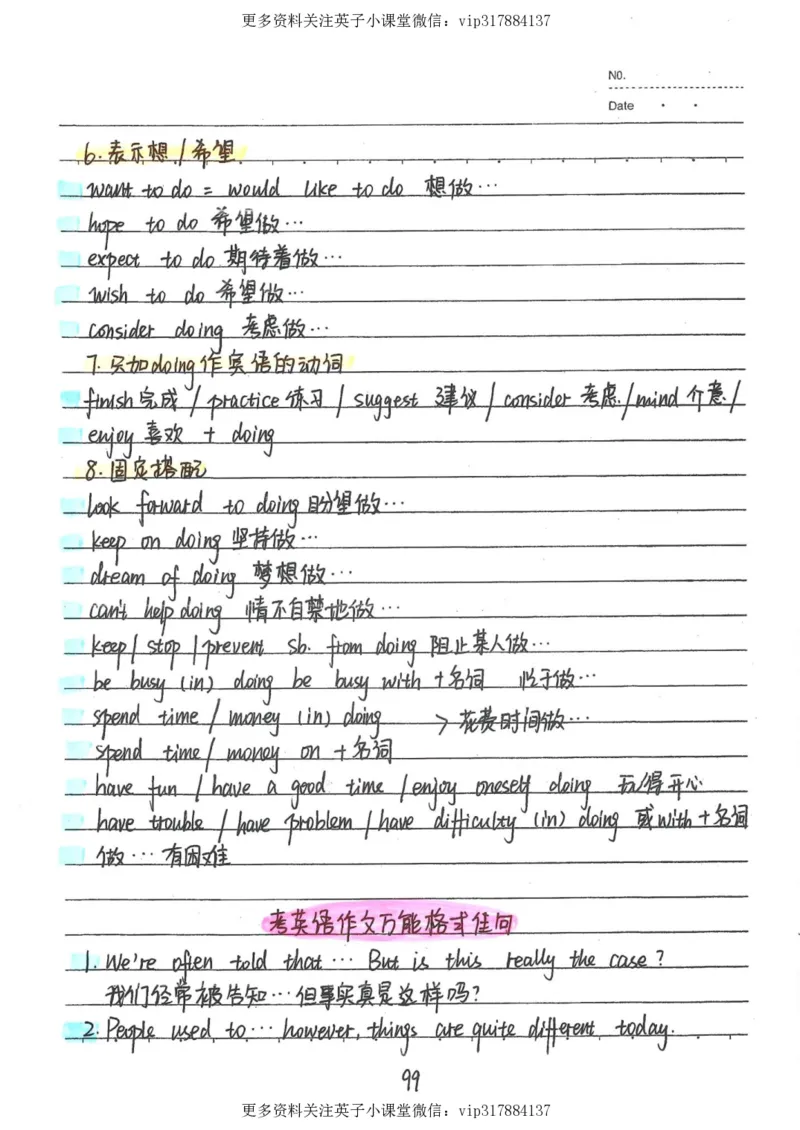 更多资料关注英子小课堂微信：vip317884137
NO.
Date
6.表示想/希望
want to do = would like to do 想做…
hope to do 希望做…
expect to do 期待着做…
wish to do 希望做…
consider doing 考虑做…
7.只加doing作宾语的动词
finish完成/practice练习/suggest 建议/consider考虑/mind介意/
enjoy喜欢 + doing
8.固定搭配
look forward to doing盼望做…
keep on doing坚持做…
dream of doing 梦想做…
can't help doing 情不自禁地做…
keep/stop/prevent sb. from doing阻止某人做…
be busy (in) doing be busy with +名词 忙于做…
spend time/money (in) doing >花费时间做…
spend time/money on +名词
have fun/have a good time/enjoy oneself doing 玩得开心
have trouble/have problem/have difficulty (in) doing 或with+名词
做…有困难
考英语作文万能格式佳句
1.We're often told that… But is this really the case?
我们经常被告知…但事实真是这样吗?
2.People used to… however, things are quite different today.
99
更多资料关注英子小课堂微信：vip317884137